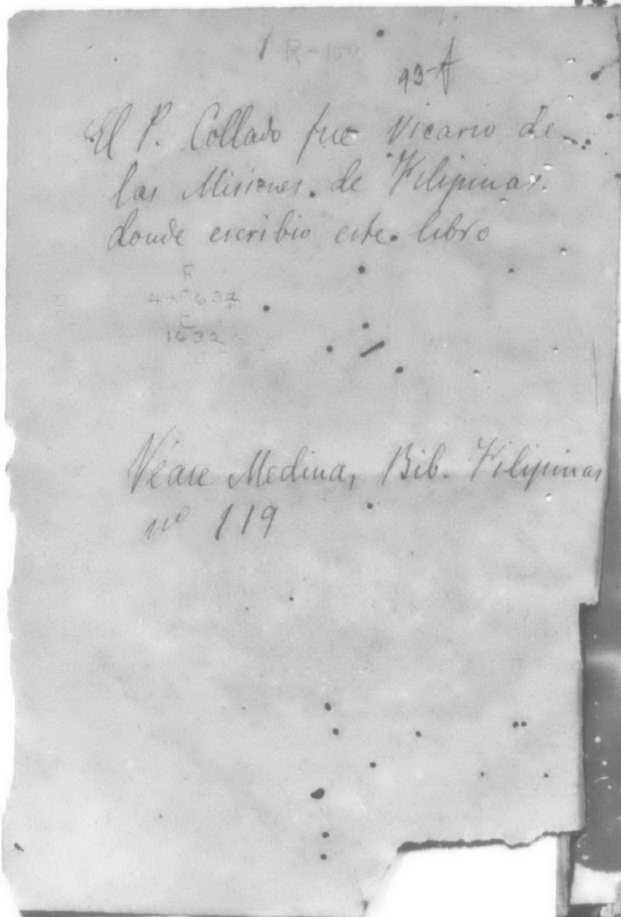 1 R-150
93-A
El P. Collado fue Vicario de
las Misiones de Filipinas.
donde escribio este libro
F
1632
Véase Medina, Bib. Filipinas
nº 119